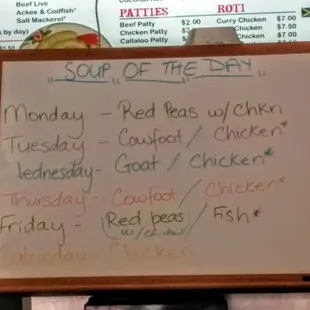 Beef Live
Ackee & Codfish*
Salt Mackerel*
s by day)
$7.50
PATTIES
Beef Patty $2.00
Chicken Patty
Callaloo Patty
ROTI
Curry Chicken $7.00
Chicken $7.50
SOUP OF THE DAY
Monday - Red Peas w/Chkn
Tuesday - Cowfoot / Chicken*
Wednesday - Goat / Chicken*
Thursday - Cowfoot / Chicken*
Friday - Red peas / Fish*
Saturday - Chicken